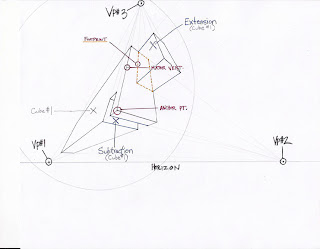 VP#3
Extension
(Cube#1)
FOOTPRINT
MAJOR VERT.
Cube#1
ANCHOR PT.
VP#1
VP#2
Subtraction
(Cube#1)
HORIZON